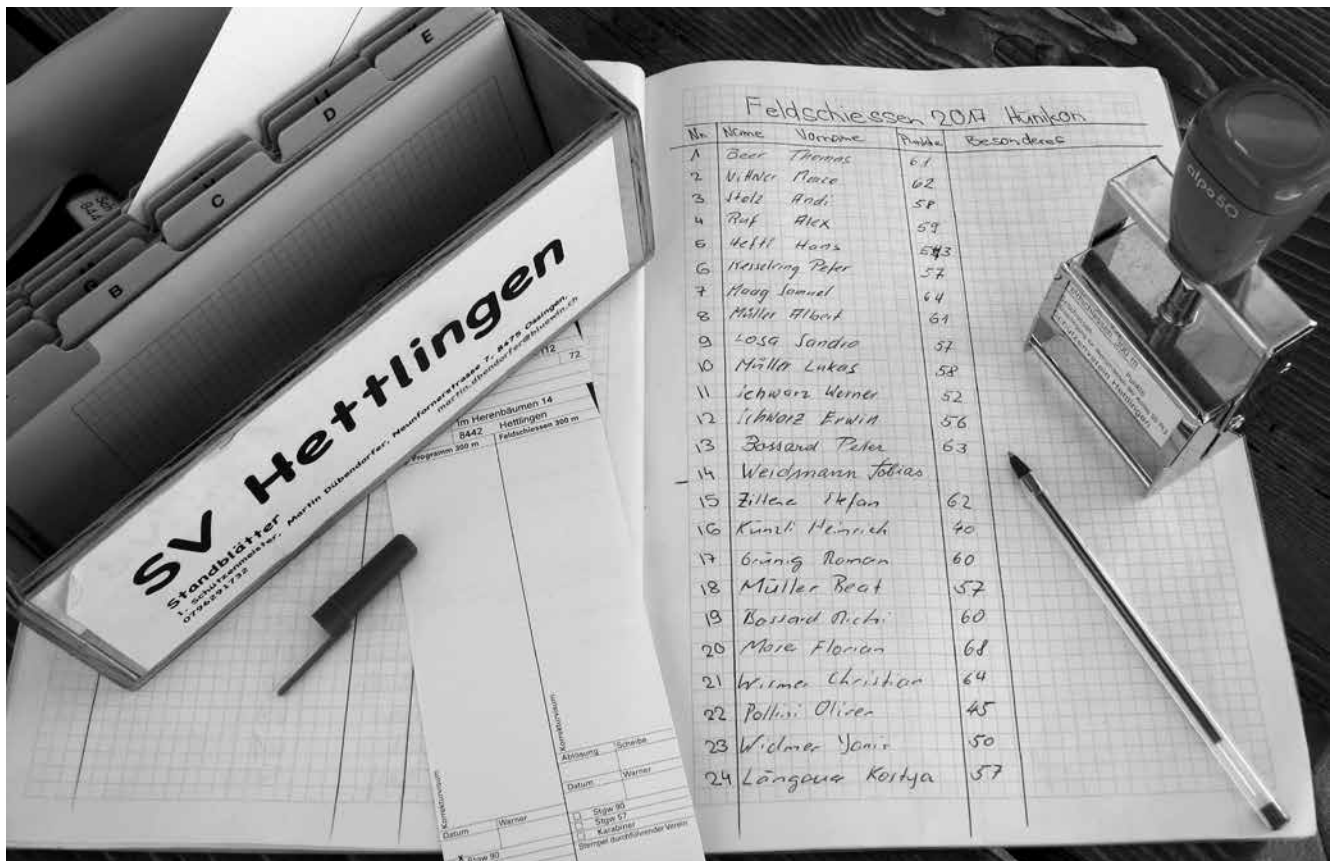 E
D
C
B
SV Hettlingen
Standblätter
1. Schützenmeister, Martin Dübendorfer, Neunfornerstrasse 7, 8475 Ossingen,
0796291732 martin.dbendorfer@bluewin.ch
72
Im Herenbäumen 14
8442 Hettlingen
Programm 300 m Feldschiessen 300 m
Korrekturraum
Korrekturraum
Ablösung Scheibe
Datum Warner
Datum Warner
Stgw 90
Stgw 57
Karabiner
Stempel durchführender Verein:
X Stgw 90
Feldschiessen 2017 Hünikon
Nr. Name Vorname Punkte Besonderes
1 Beer Thomas 61
2 62
3 Stolz Andi 58
4 Ruf Alex 59
5 Hefti Hans
6 Kesselring Peter 57
7 Maag Samuel 64
8 Müller Albert 61
9 Losa Sandro 57
10 Müller Lukas 58
11 Schwarz Werner 52
12 Schwarz Erwin 56
13 Bossard Peter 63
14 Weidmann Tobias
15 Stefan 62
16 Künzli Heinrich 40
17 Grünig Roman 60
18 Müller Beat 57
19 Bossard Michi 60
20 Moser Florian 68
21 Wismer Christian 64
22 Oliver 45
23 Widmer Yanis 50
24 Kostya 57
alpo 50
Feldschiessen 300 m
Schützenverein Hettlingen